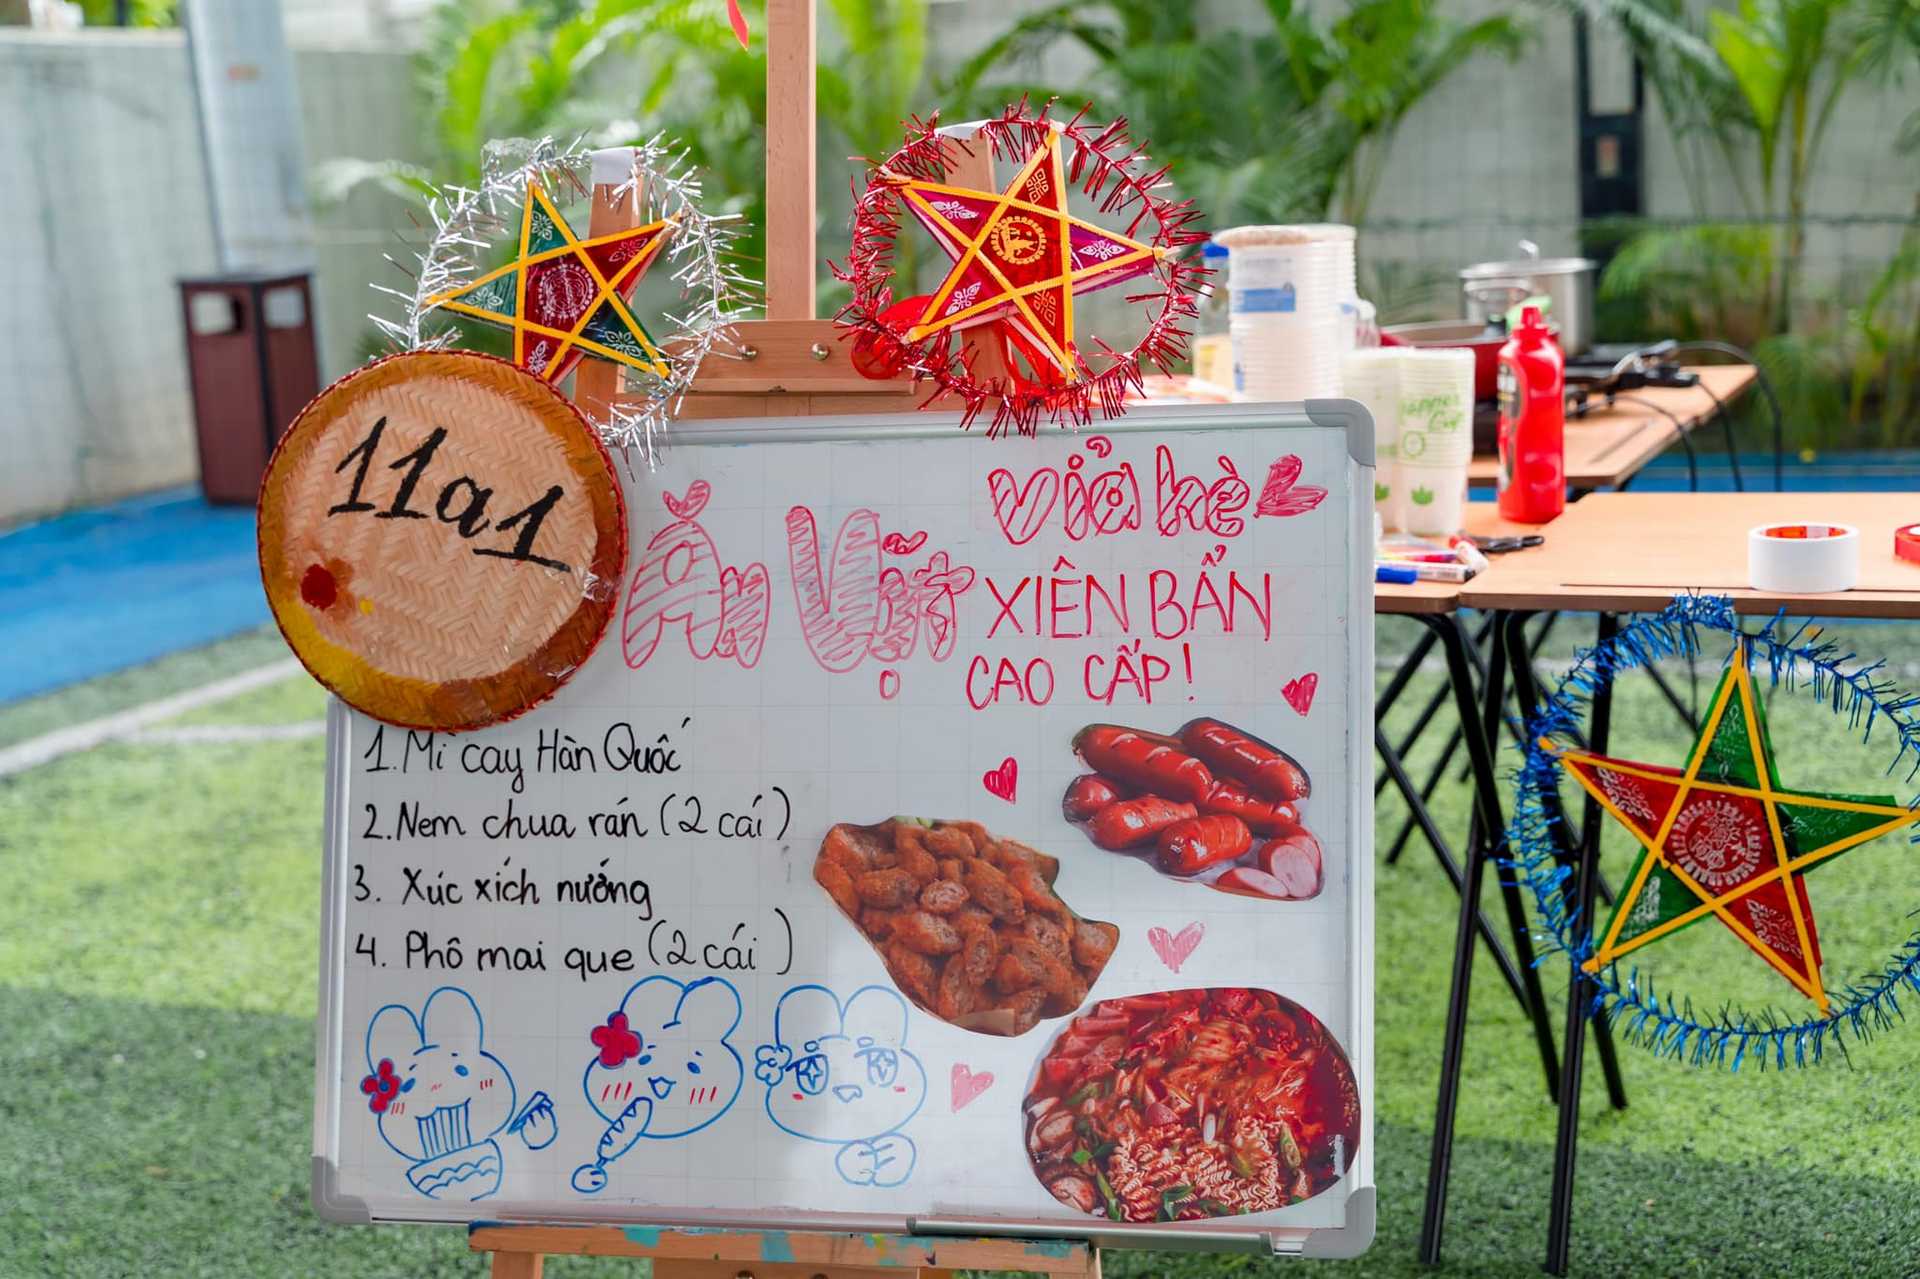 11a1
Ăn Vặt
vỉa hè
XIÊN BẨN
CAO CẤP!
1. Mì cay Hàn Quốc
2. Nem chua rán (2 cái)
3. Xúc xích nướng
4. Phô mai que (2 cái)